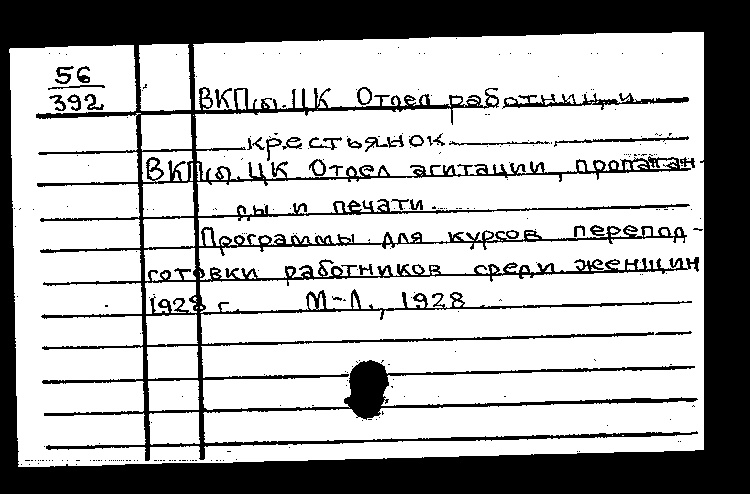 56
392
ВКП(б). ЦК. Отдел работниц и
крестьянок.
ВКП(б). ЦК. Отдел агитации, пропаган-
ды и печати.
Программы для курсов перепод-
готовки работников среди женщин
1928 г. М-Л., 1928